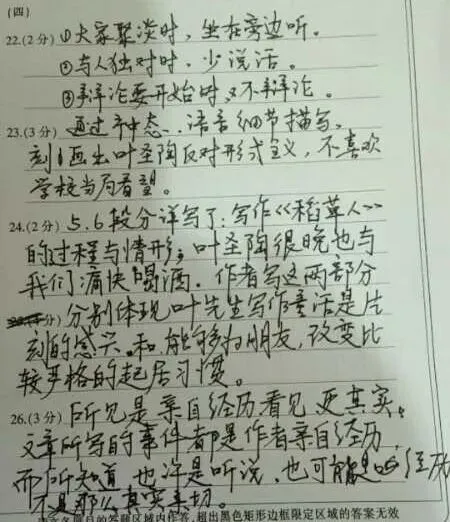 (四)
22.(2分) ①大家聚淡时，坐在旁边听。
②与人独对时，少说话。
③辩论要开始时，又不辩论。
23.(3分) 通过神态、语言细节描写，
刻画出叶圣陶反对形式主义，不喜欢
学校当局看望。
24.(2分) 5.6段分详写了：写作《稻草人》
的过程与情形；叶圣陶很晚也与
我们痛快喝酒。作者写这两部分
分别体现叶先生写作童话是片
刻的感兴。和，能够为朋友，改变比
较严格的起居习惯。
26.(3分) 所见是亲自经历看见 更真实。
文章所写的事件都是作者亲自经历，
而所知道，也许是听说，也可能是 经历
不是那么真实亲切。
答题区域内作答，超出黑色矩形边框限定区域的答案无效